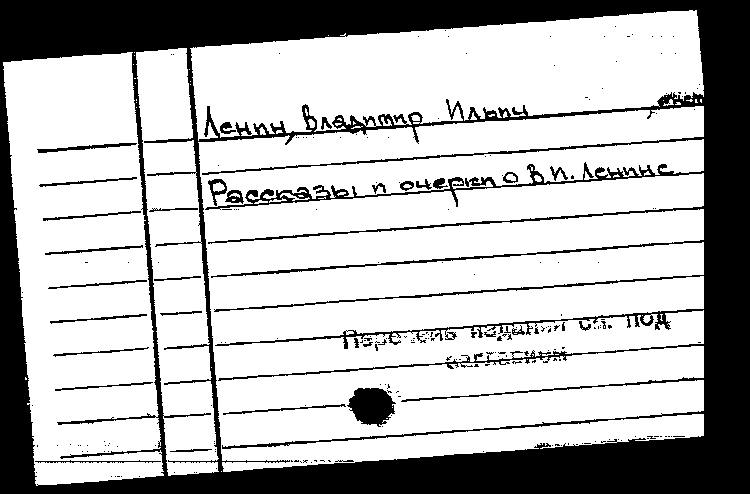 Ленин, Владимир Ильич
Рассказы и очерки о В.И. Ленине
Перечень изданий см. под
заглавием